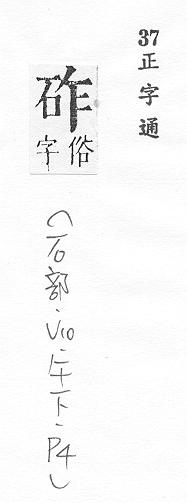 37 正字通
砟 俗字
(石部.V10.午下.P4)